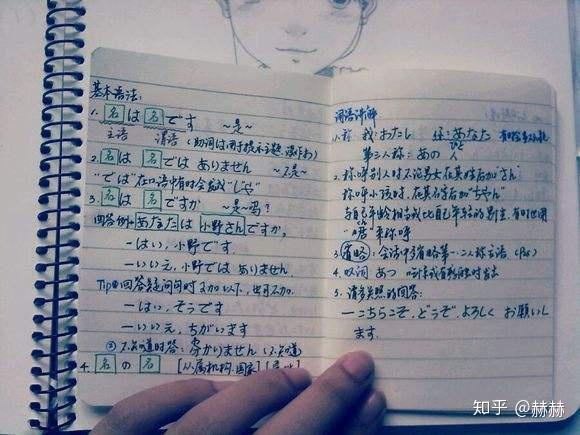 基本语法:
1. 名 は 名 です ~是~
主语 谓语 (助词は用于提示主题,读作わ)
2. 名は 名 では ありません ~不是~
"では"在口语中有时会成"じゃ"
3. 名は 名 ですか ~是~吗?
回答例: あなたは 小野さんですか。
-はい,小野です
-いいえ,小野では ありません.
Tip 回答疑问句时
-はい、そうです
-いいえ,ちがいます
② 不知道时答: 分かりません (不知道
4. 名 の 名 [从属机构.国家]
词语讲解
1. 称 我:わたし 你:あなた
第三人称: あの 人
ひと
2. 称呼别人时不论男女在其姓后加"さん"
称呼小孩时,在其名字后加"ちゃん"
与自己年龄相当或比自己年轻的男生,有时也用
くん
"君"来称呼
3. 省略: 会话中多省略第一.二人称主语
4. 叹词 あっ
5. 请多关照的回答:
-こちらこそ、どうぞ、よろしく お願いし
ます.
知乎 @赫赫